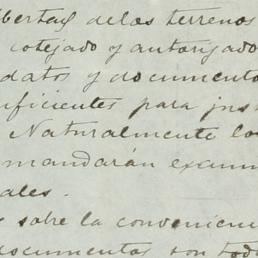 libertad delos terrenos
cotejado y autorizado
datos y documento
uficientes para jus
Naturalmente lo
mandarán exami
ales.
sobre la convenien
ocumentos son tod